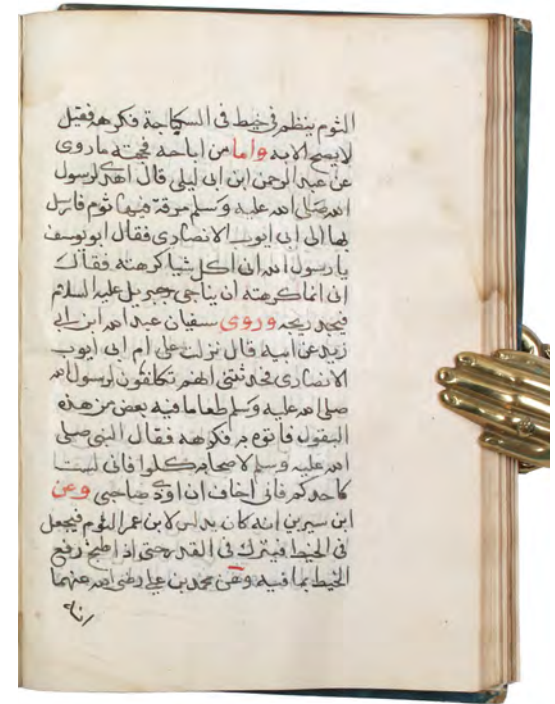 الثوم ينظم في خيط في السكباجة فكرهه فقيل
لا يصح الا به واما من اباحه فحجته ما روى
عن عبد الرحمن ابن ابى ليلى قال اهدى لرسول
الله صلى الله عليه وسلم مرقة فيها ثوم فارسل
بها الى ابى ايوب الانصارى فقال ابو يوسف
يا رسول الله ان اكل شيا كرهته فقال
انى انما كرهته ان يناجى جبريل عليه السلام
فيجد ريحه وروى سفيان عبد الله ابن ابى
زيد عن ابيه قال نزلت على ام ابى ايوب
الانصارى فحدثتنى انهم تكلفون لرسول الله
صلى الله عليه وسلم طعاما فيه بعض من هذه
البقول فاتوه به فكرهه فقال النبى صلى
الله عليه وسلم لاصحابه كلوا فانى لست
كاحدكم فانى اخاف ان اوذى صاحبى وعن
ابن سيرين انه كان لابن عمر الثوم فيجعل
فى الخيط فيترك فى القدر حتى اذا طبخ رفع
الخيط بما فيه وعن محمد بن على رضى الله عنهما
انه